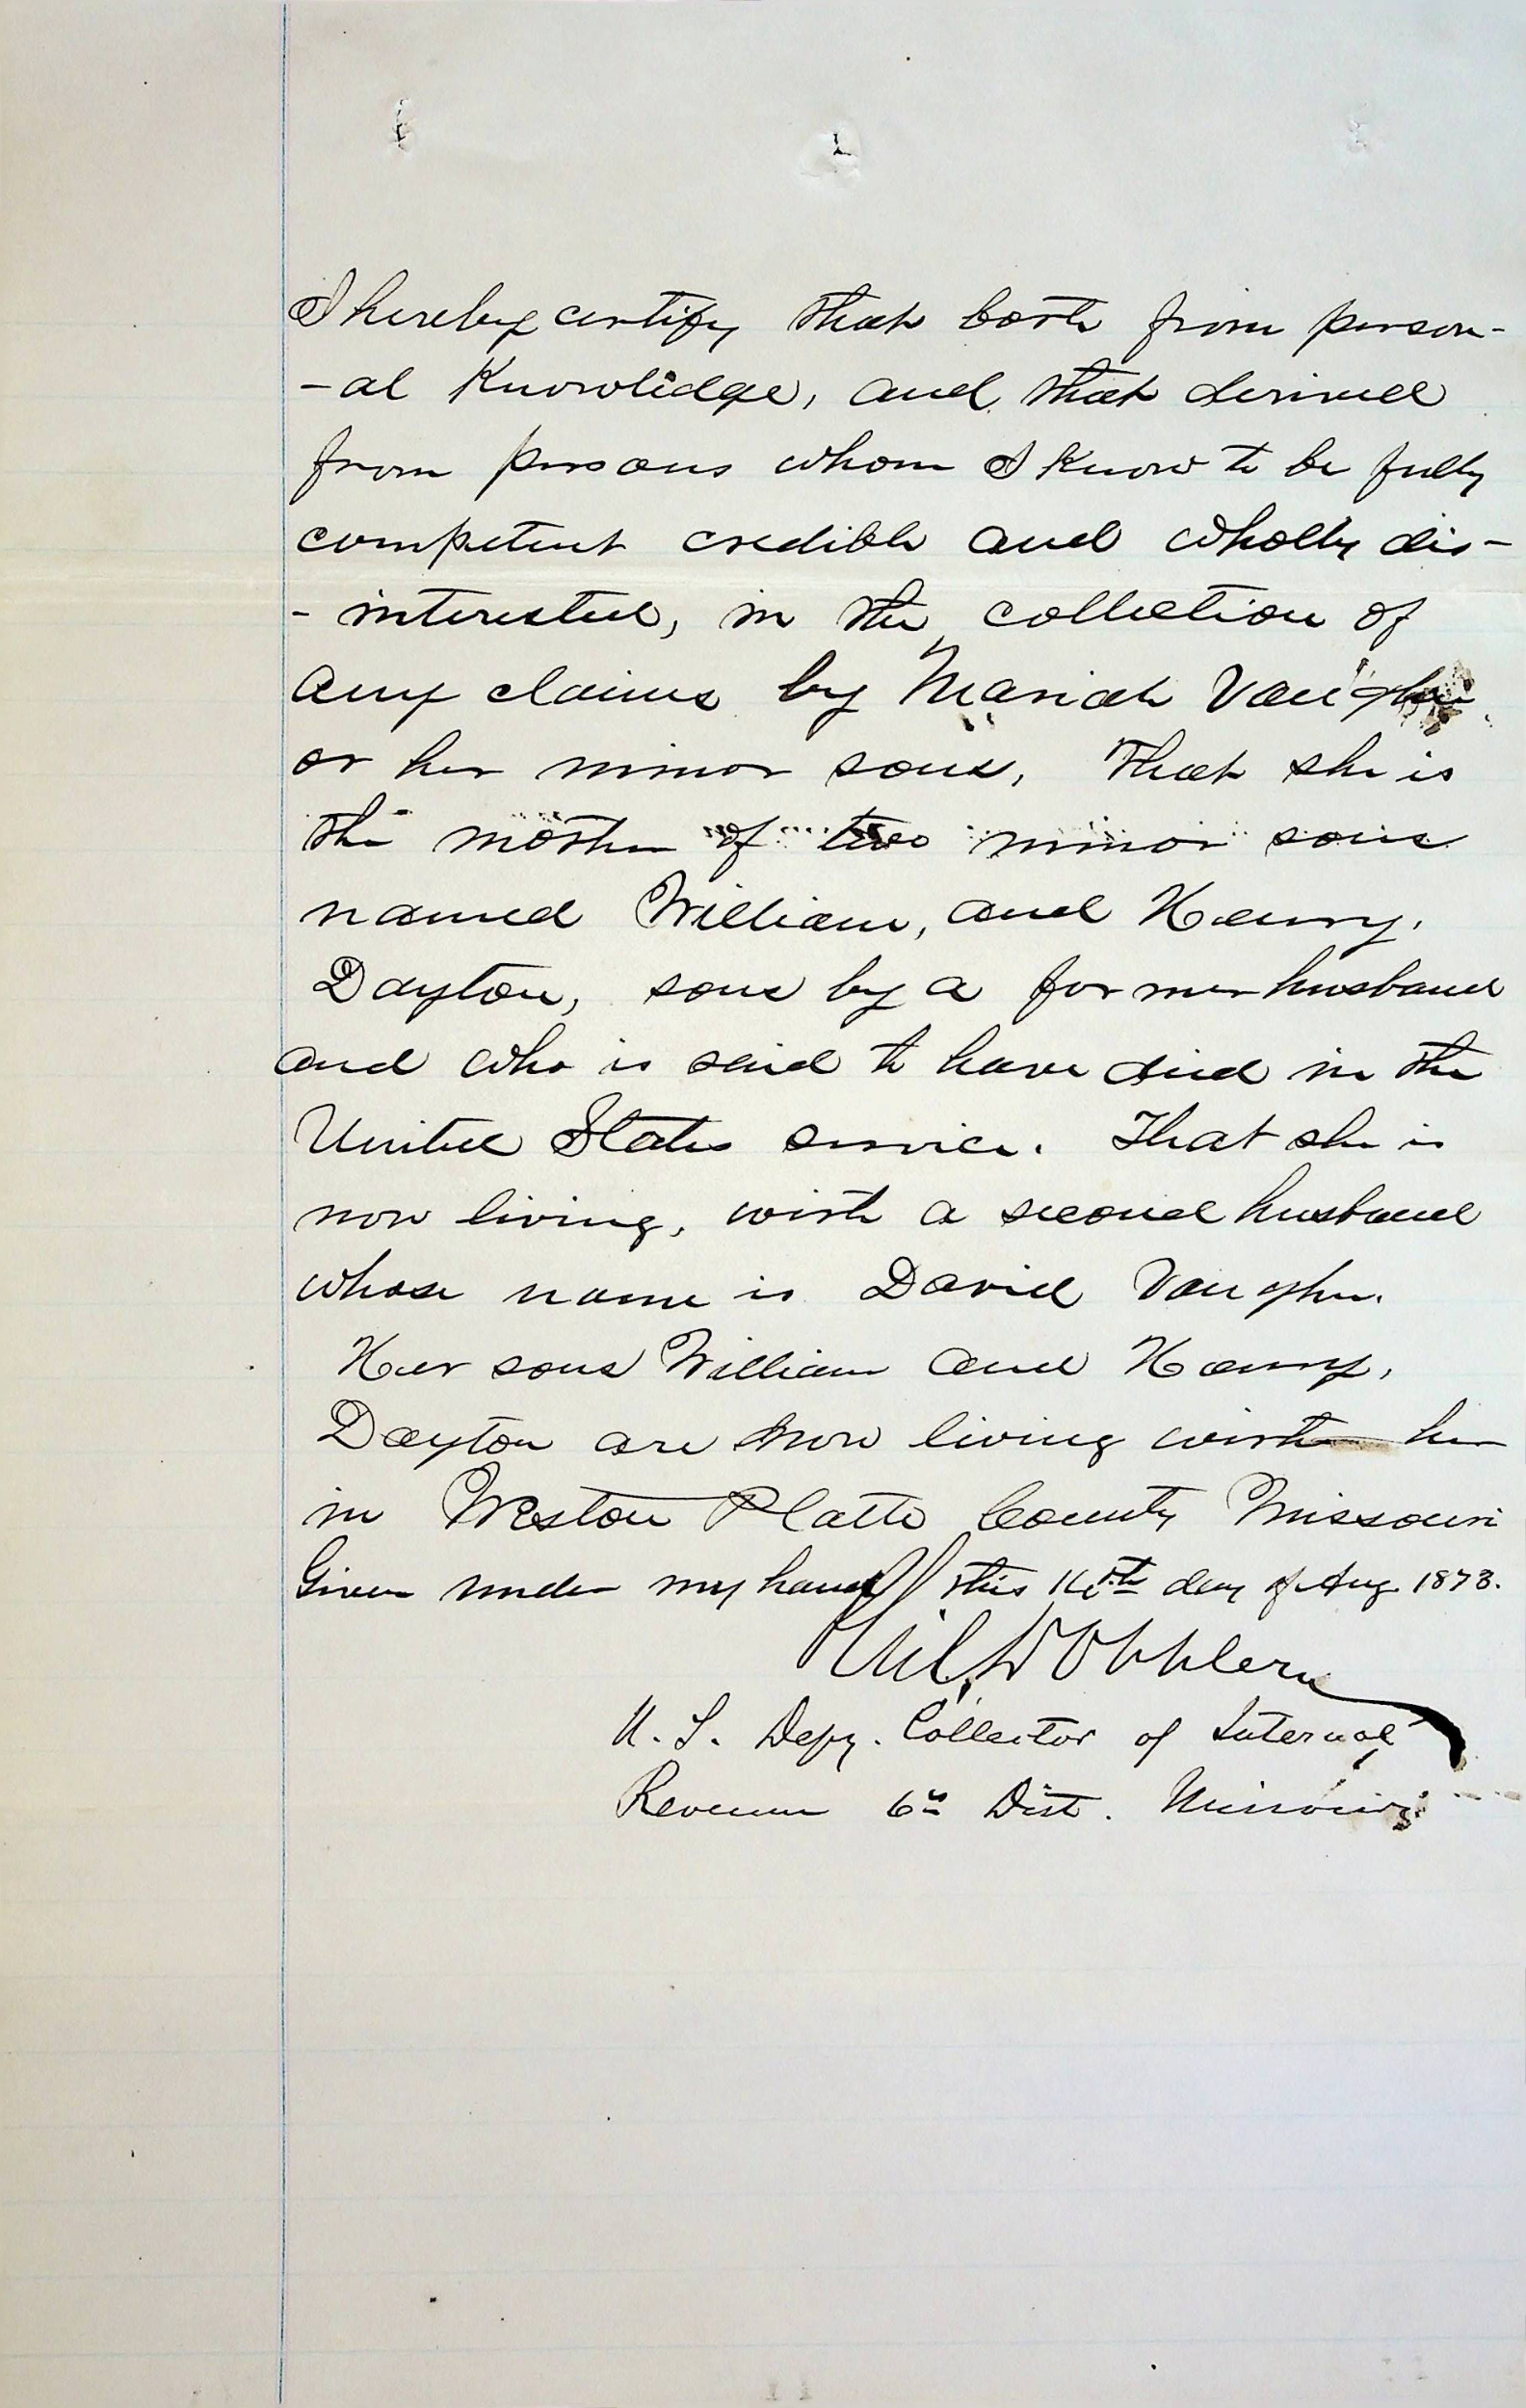 I hereby certify that both from person-
-al Knowledge, and that derived
from persons whom I Know to be fully
competent credible and wholly dis-
-interested, in the collection of
any claims by Mariah Vaughn
or her minor sons, That she is
the mother of two minor sons
named William, and Henry.
Dayton, sons by a former husband
and who is said to have died in the
United States service. That she is
now living, with a second husband
whose name is David Vaughn.
Her sons William and Henry,
Dayton are now living with her
in Weston Platte County Missouri
Given under my hand this 16th day of Aug 1873.
U. S. Depy. Collector of Internal
Revenue 6th Dist. Missouri